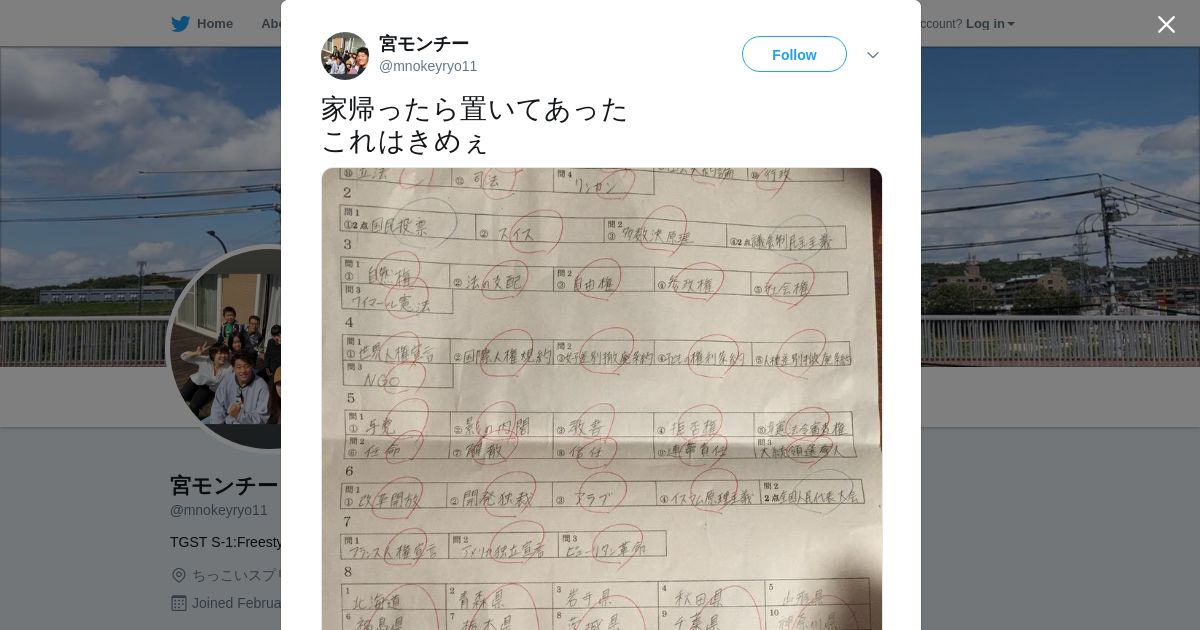 Home
Abo
ccount? Log in
宮モンチー
@mnokeyryo11
Follow
家帰ったら置いてあった
これはきめぇ
⑪ 立法 ⑫ 司法 問4 リンカン 行政
2
問1 ①2点 国民投票 ② スイス 問2 ③ 多数決原理 ④2点 議会制民主主義
3
問1 ① 自然権 ② 法の支配 問2 ③ 自由権 ④ 参政権 ⑤ 社会権
問3 ワイマール憲法
4
問1 ① 世界人権宣言 ② 国際人権規約 問2 ③ 女子差別撤廃条約 ④ 子どもの権利条約 ⑤ 人種差別撤廃条約
問3 NGO
5
問1 ① 与党 ② 影の内閣 ③ 教書 ④ 拒否権 ⑤ 違憲法令審査権
問2 ⑥ 任命 ⑦ 解散 ⑧ 信任 ⑨ 連帯責任 問3 大統領選挙人
6
問1 ① 改革開放 ② 開発独裁 ③ アラブ ④ イスラム原理主義 問2 2点 全国人民代表大会
7
問1 フランス人権宣言 問2 アメリカ独立宣言 問3 ピューリタン革命
8
1 北海道 2 青森県 3 岩手県 4 秋田県 5 山形県
6 福島県 7 栃木県 8 茨城県 9 千葉県 10 神奈川県
宮モンチー
@mnokeyryo11
TGST S-1:Freesty
ちっこいスプリ
Joined Februa